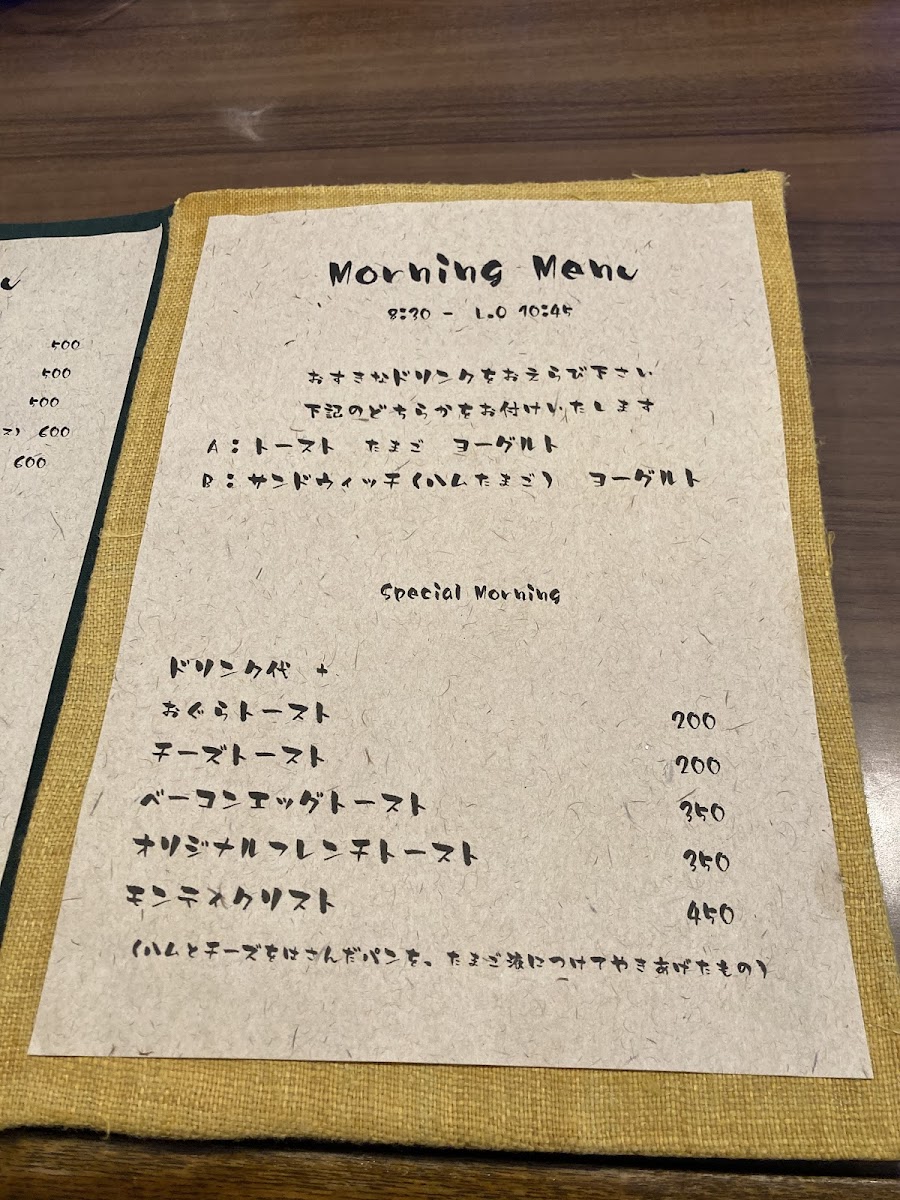 500
500
500
600
600
Morning Menu
8:30 - L.O 10:45
おすきなドリンクをおえらび下さい
下記のどちらかをお付けいたします
A:トースト たまご ヨーグルト
B:サンドウィッチ(ハムたまご) ヨーグルト
Special Morning
ドリンク代 +
おぐらトースト 200
チーズトースト 200
ベーコンエッグトースト 350
オリジナルフレンチトースト 350
モンテクリスト 450
(ハムとチーズをはさんだパンを、たまご液につけてやきあげたもの)